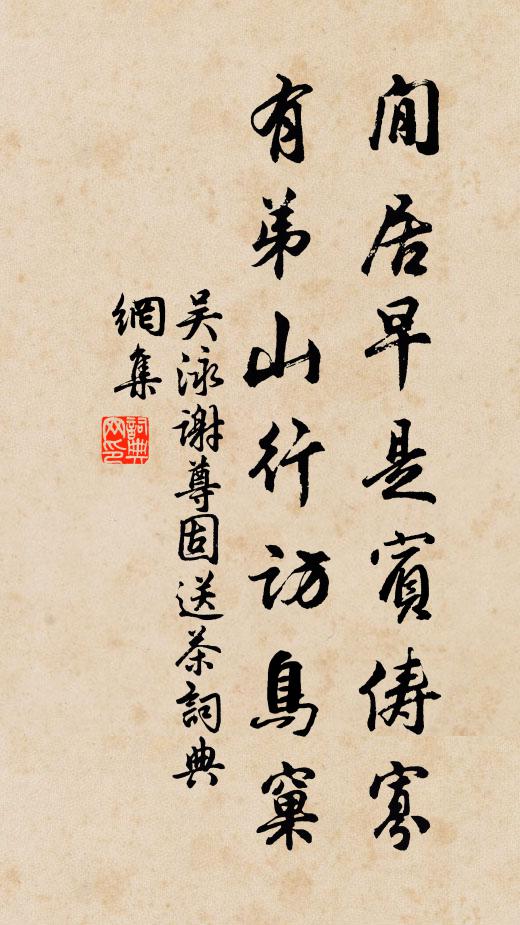 閒居早是賓儔寡
有弟山行訪鳥窠
吳泳謝尊固送茶詞典
網集
詞典网印